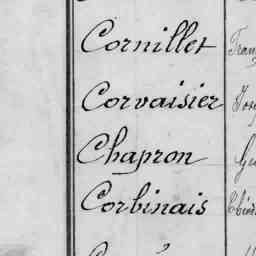 Cornillet
Corvaisier
Chapron
Corbinais